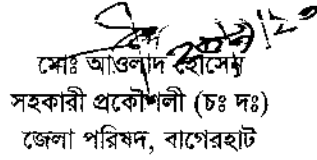 মোঃ আওলাদ হোসেন
সহকারী প্রকৌশলী (চঃ দঃ)
জেলা পরিষদ, বাগেরহাট